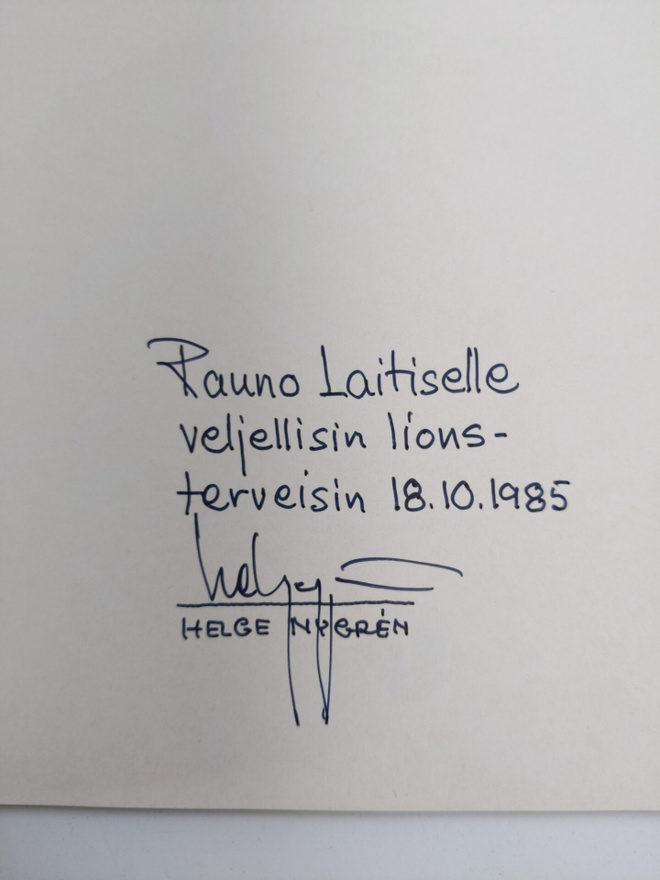 Rauno Laitiselle
veljellisin lions-
terveisin 18.10.1985
HELGE NYGRÉN